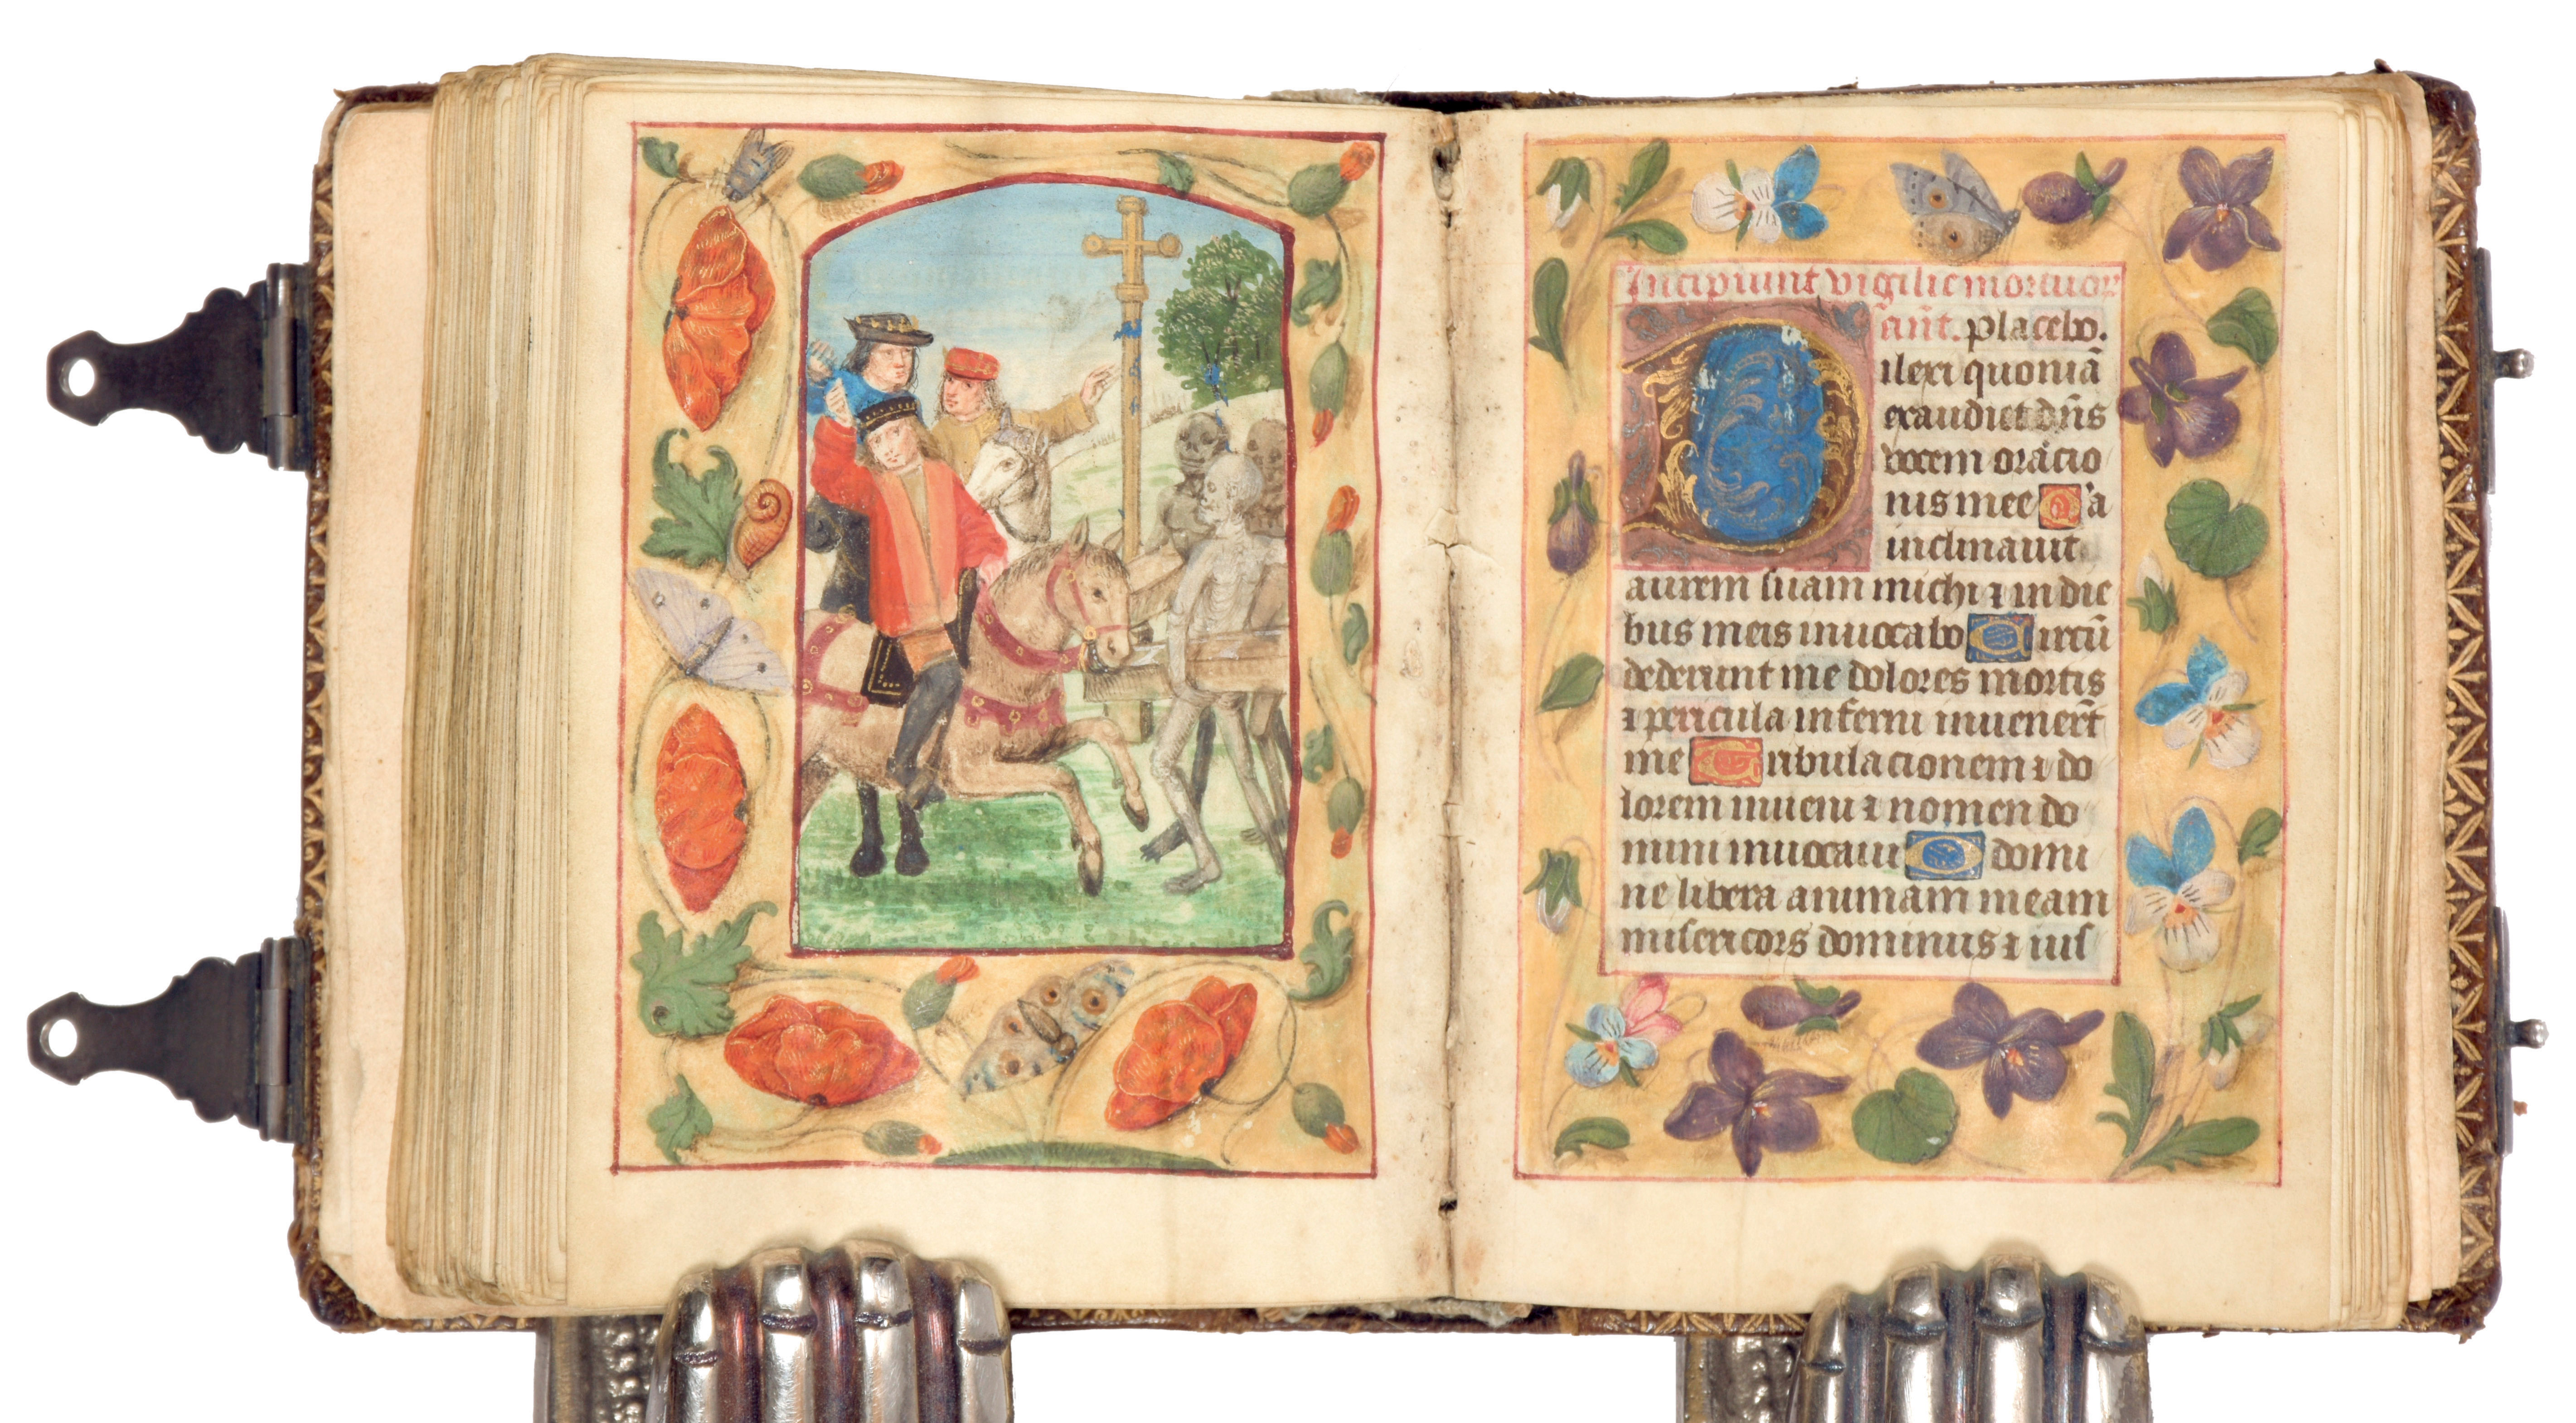 Incipiunt vigilie mortuoꝝ
añt. placebo.
Dilexi quoniā
exaudiet dñs
vocem oracio
nis mee Qꝛa
inclinauit
aurem suam michi ⁊ in die
bus meis inuocabo Circū
dederunt me dolores mortis
⁊ pericula inferni inuenerūt
me Tribulacionem ⁊ do
lorem inueni ⁊ nomen do
mini inuocaui O domi
ne libera animam meam
misericors dominus ⁊ ius